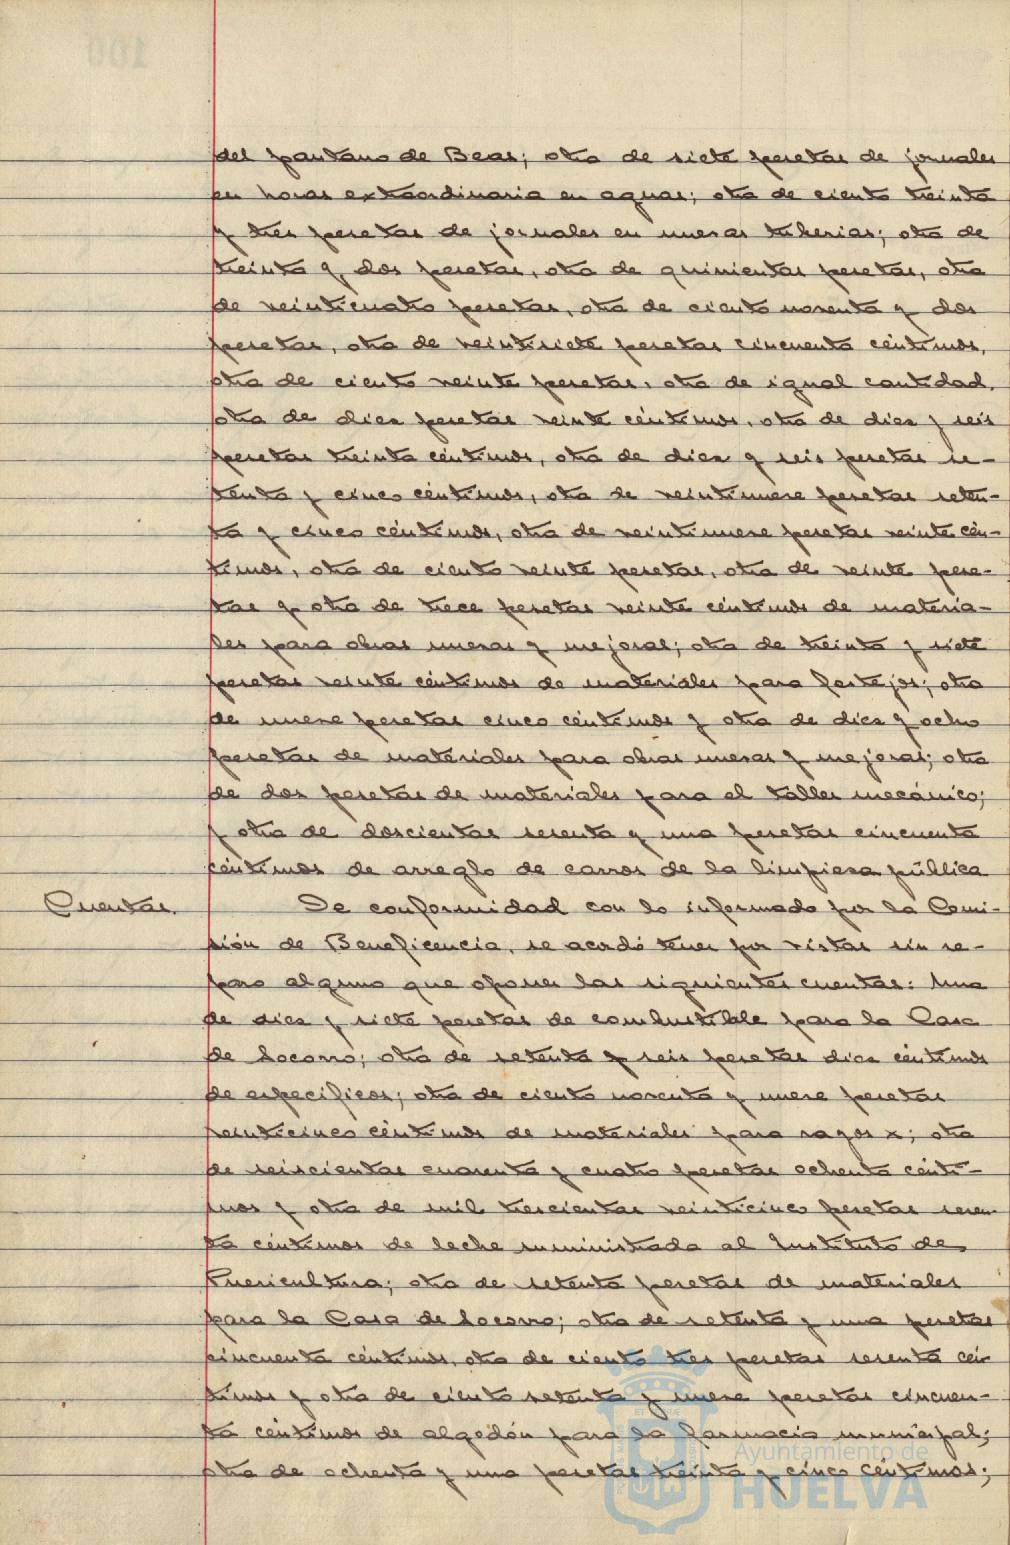 del pantano de Beas; otra de siete pesetas de jornales
en horas extraordinaria en aguas; otra de ciento treinta
y tres pesetas de jornales en nuevas tuberias; otra de
treinta y dos pesetas, otra de quinientas pesetas, otra
de veinticuatro pesetas, otra de ciento noventa y dos
pesetas, otra de veintisiete pesetas cincuenta céntimos,
otra de ciento veinte pesetas, otra de igual cantidad,
otra de diez pesetas veinte céntimos, otra de diez y seis
pesetas treinta céntimos, otra de diez y seis pesetas se-
tenta y cinco céntimos, otra de veintinueve pesetas seten-
ta y cinco céntimos, otra de veintinueve pesetas veinte cén-
timos, otra de ciento veinte pesetas, otra de veinte pese-
tas y otra de trece pesetas veinte céntimos de materia-
les para obras nuevas y mejoras; otra de treinta y siete
pesetas veinte céntimos de materiales para festejos; otra
de nueve pesetas cinco céntimos y otra de diez y ocho
pesetas de materiales para obras nuevas y mejoras; otra
de dos pesetas de materiales para el taller mecánico;
y otra de doscientas sesenta y una pesetas cincuenta
céntimos de arreglo de carros de la limpieza pública
Cuentas. De conformidad con lo informado por la Comi-
sión de Beneficencia, se acordó tener por vistas sin re-
paro alguno que oponer las siguientes cuentas: Una
de diez y siete pesetas de combustible para la Casa
de Socorro; otra de setenta y seis pesetas diez céntimos
de específicos; otra de ciento noventa y nueve pesetas
veinticinco céntimos de materiales para rayos x; otra
de seiscientas cuarenta y cuatro pesetas ochenta cénti-
mos y otra de mil trescientas veinticinco pesetas sesen-
ta céntimos de leche suministrada al Instituto de
Puericultura; otra de setenta pesetas de materiales
para la Casa de Socorro; otra de setenta y una pesetas
cincuenta céntimos, otra de ciento tres pesetas sesenta cén-
timos y otra de ciento setenta y nueve pesetas cincuen-
ta céntimos de algodón para la farmacia municipal;
otra de ochenta y una pesetas treinta y cinco céntimos;
Ayuntamiento de
HUELVA